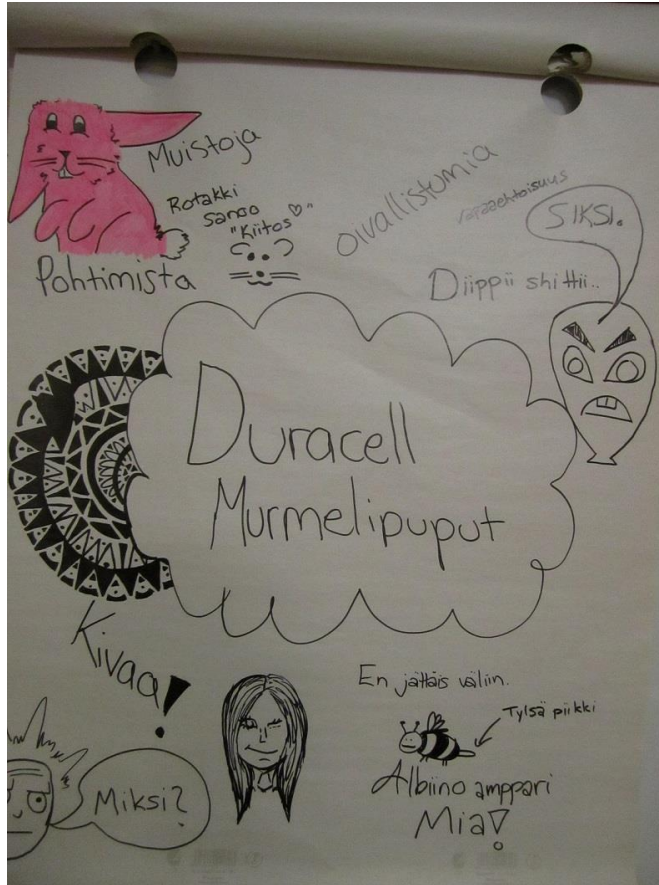 Muistoja
Rotakki
sanoo
"Kiitos♡"
Pohtimista
oivallistumia
vapaaehtoisuus
SIKSI.
Diippii shittii..
Duracell
Murmelipuput
Kivaa!
Miksi?
En jättäis väliin.
Tylsä piikki
Albiino amppari
Mia!